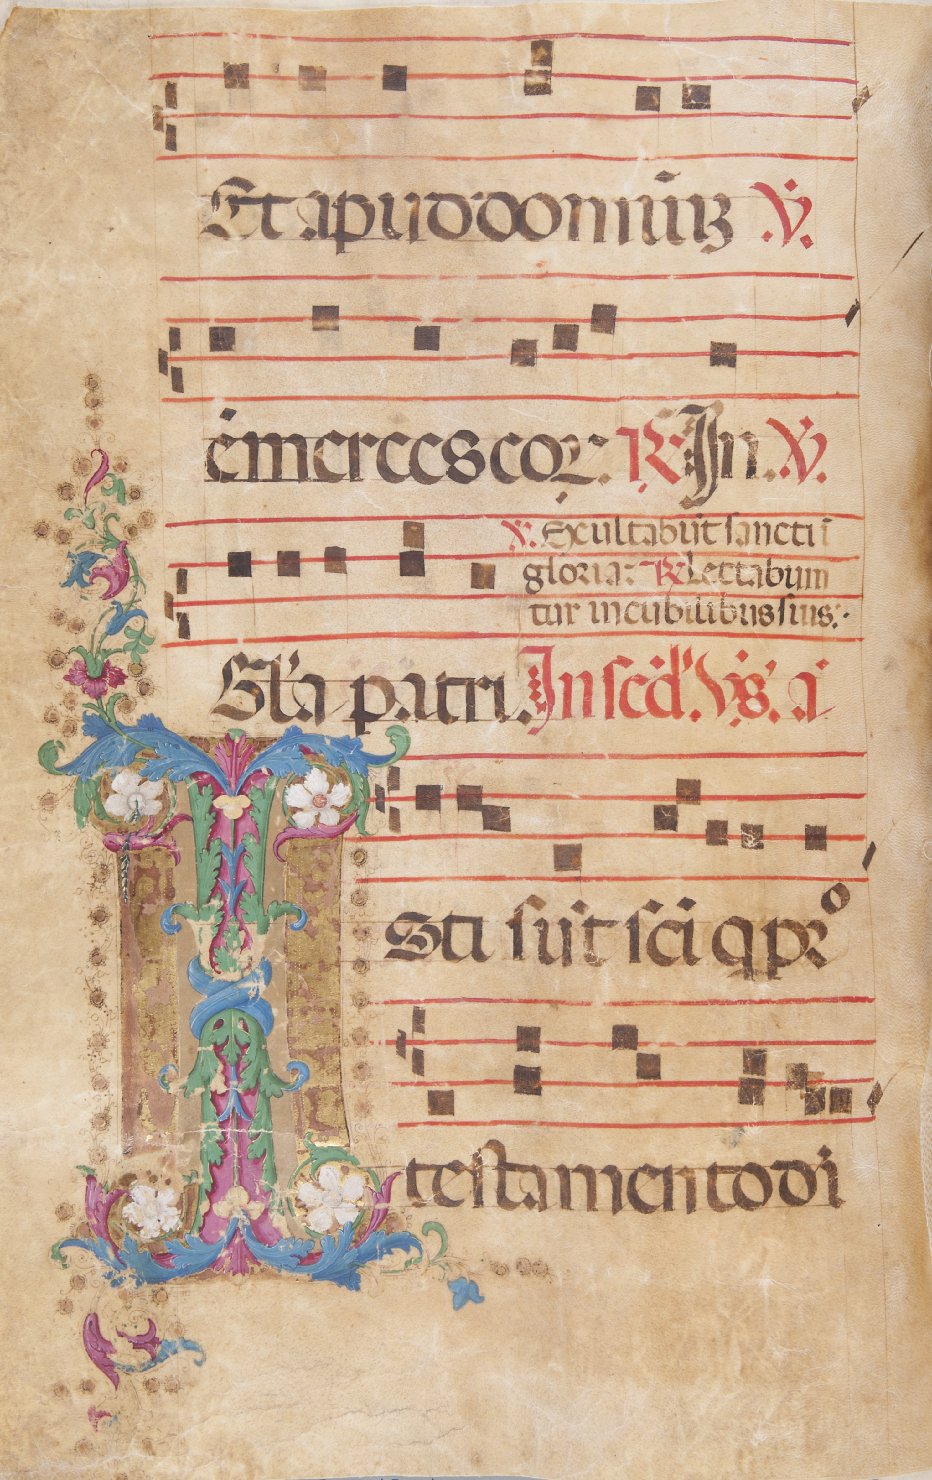 Et apud dominū ℣.
ē merces eoꝝ. ℟ In. ℣.
℣. Exultabūt sancti ī
gloria: ℟ Lectabun
tur in cubilibus suis:·
Gl'a patri. In scd'. Vīs. ā
Isti sūt scī q pro
testamento di